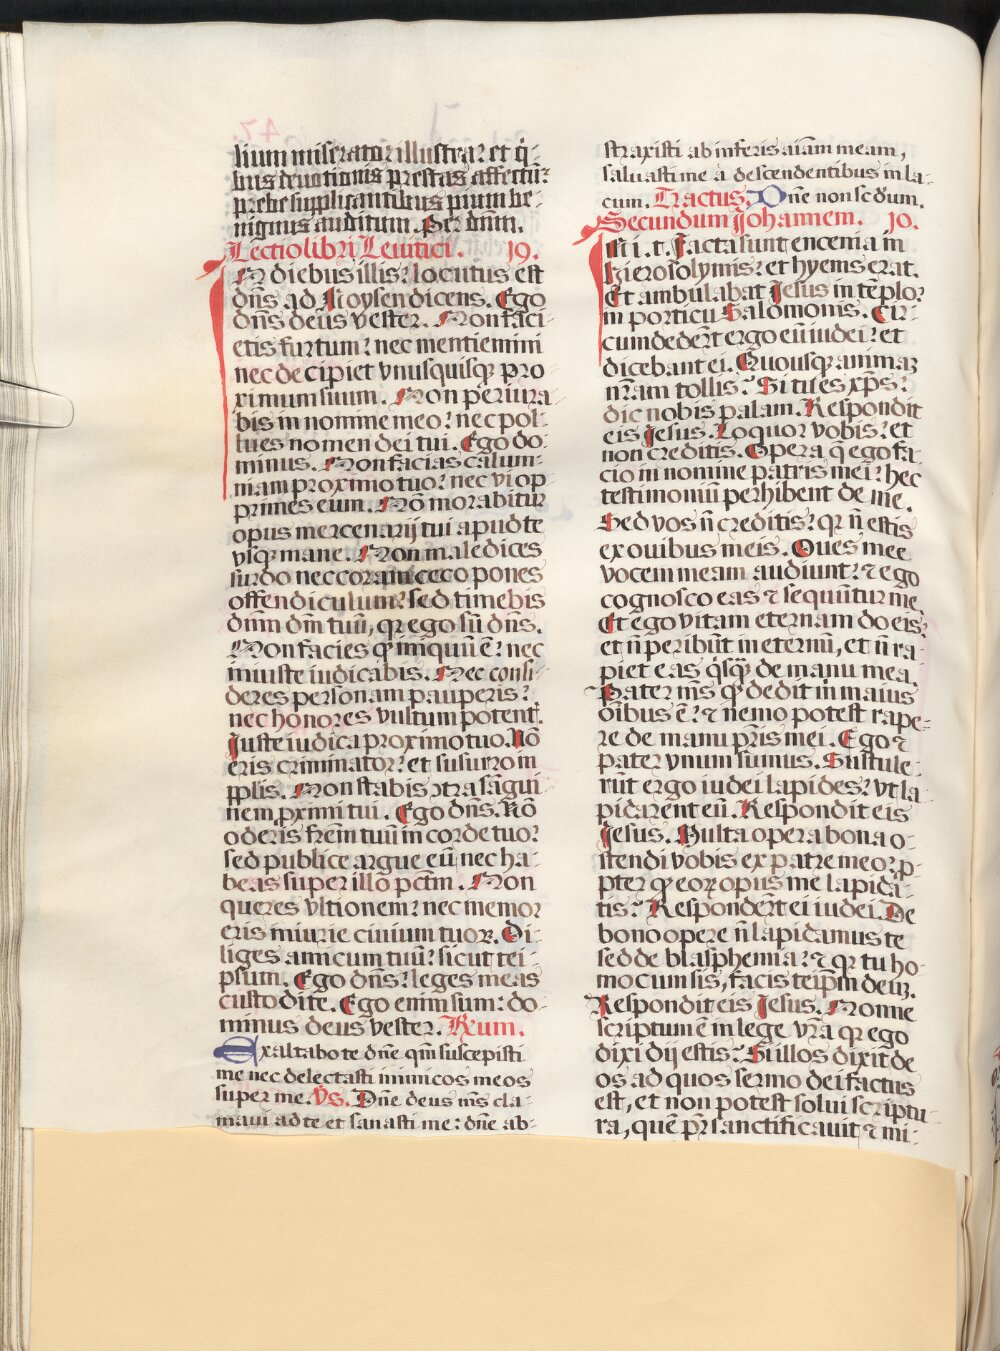 lium miserator illustra: et q̇-
bus deuotionis prestas affectū:
prebe supplicantibus pium be-
nignus auditum. Per dñm.
Lectio libri Leuitici. 19.
In diebus illis: locutus est
dñs ad Moysen dicens. Ego
dñs deus vester. Non faci-
etis furtum: nec mentiemini
nec decipiet vnusquisqȝ pro
ximum suum. Non periura
bis in nomine meo: nec pol-
lues nomen dei tui. Ego do-
minus. Non facias calum-
niam proximo tuo: nec vi op
primes eum. Nō morabitur
opus mercenarij tui apud te
vsqȝ mane. Non maledices
surdo nec coram ceco pones
offendiculum: sed timebis
dñm dm̄ tuū, qꝛ ego sū dñs.
Non facies qꝫ iniquū ē: nec
iniuste iudicabis. Nec consi-
deres personam pauperis:
nec honores vultum potent̄.
Juste iudica proximo tuo. Nō
eris criminator: et susurro in
pplis. Non stabis ɔtra sāgui
nem ꝓximi tui. Ego dñs. Nō
oderis frēm tuū in corde tuo:
sed publice argue eū: nec ha-
beas super illo pctm̄. Non
queres vltionem: nec memor
eris iniurie ciuium tuoꝝ. Di-
liges amicum tuū: sicut tei-
psum. Ego dñs: leges meas
custodite. Ego enim sum: do-
minus deus vester. Rxum.
Exaltabo te dñe qm̄ suscepisti
me nec delectasti inimicos meos
super me. Vs. Dñe deus ms̄ cla-
maui ad te et sanasti me: dñe ab-
straxisti ab inferis aīam meam,
saluasti me a descendentibus in la-
cum. Tractus. Dñe non scdum.
Secundum Johannem. 10.
In i. t. Facta sunt encenia in
hierosolymis: et hyems erat.
Et ambulabat Jesus in tēplo:
in porticu Salomonis. Cir-
cumdedert̄ ergo eū iudei: et
dicebant ei. Quousqȝ animaȝ
nr̄am tollis? Si tu es xp̄s:
dic nobis palam. Respondit
eis Jesus. Loquor vobis: et
non creditis. Opera q̄ ego fa-
cio in nomine patris mei: hec
testimoniū perhibent de me.
Sed vos n̄ creditis: qꝛ n̄ estis
ex ouibus meis. Oues mee
vocem meam audiunt: ⁊ ego
cognosco eas ⁊ sequūtur me.
Et ego vitam eternam do eis:
et n̄ peribūt in eternū, et n̄ ra-
piet eas q̇sqȝ de manu mea.
Pater ms̄ qꝫ dedit m̄ maius
oībus ē: ⁊ nemo potest rape-
re de manu pr̄is mei. Ego ⁊
pater vnum sumus. Sustule-
rūt ergo iudei lapides: vt la-
pidarent eū. Respondit eis
Jesus. Multa opera bona o-
stendi vobis ex patre meo: ꝓ-
pter qꝫ eoꝝ opus me lapida-
tis? Respondert̄ ei iudei. De
bono opere n̄ lapidamus te
sed de blasphemia: ⁊ qꝛ tu ho-
mo cum sis, facis teip̄m deuȝ.
Respondit eis Jesus. Nonne
scriptum ē in lege vr̄a qꝛ ego
dixi dij estis? Si illos dixit de
os ad quos sermo dei factus
est, et non potest solui scriptu-
ra, quē pr̄ sanctificauit ⁊ mi-